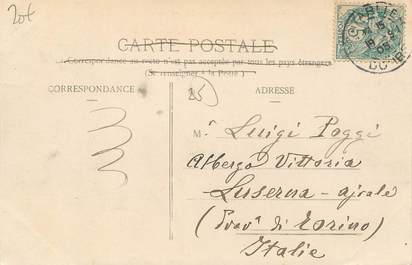 20t
CARTE POSTALE
Correspondance au recto n'est pas acceptée par tous les pays étrangers
(Se renseigner à la Poste)
CORRESPONDANCE
ADRESSE
25
M. Luigi Poggi
Albergo Vittoria
Luserna - ajrale
(Prov° di Torino)
Italie